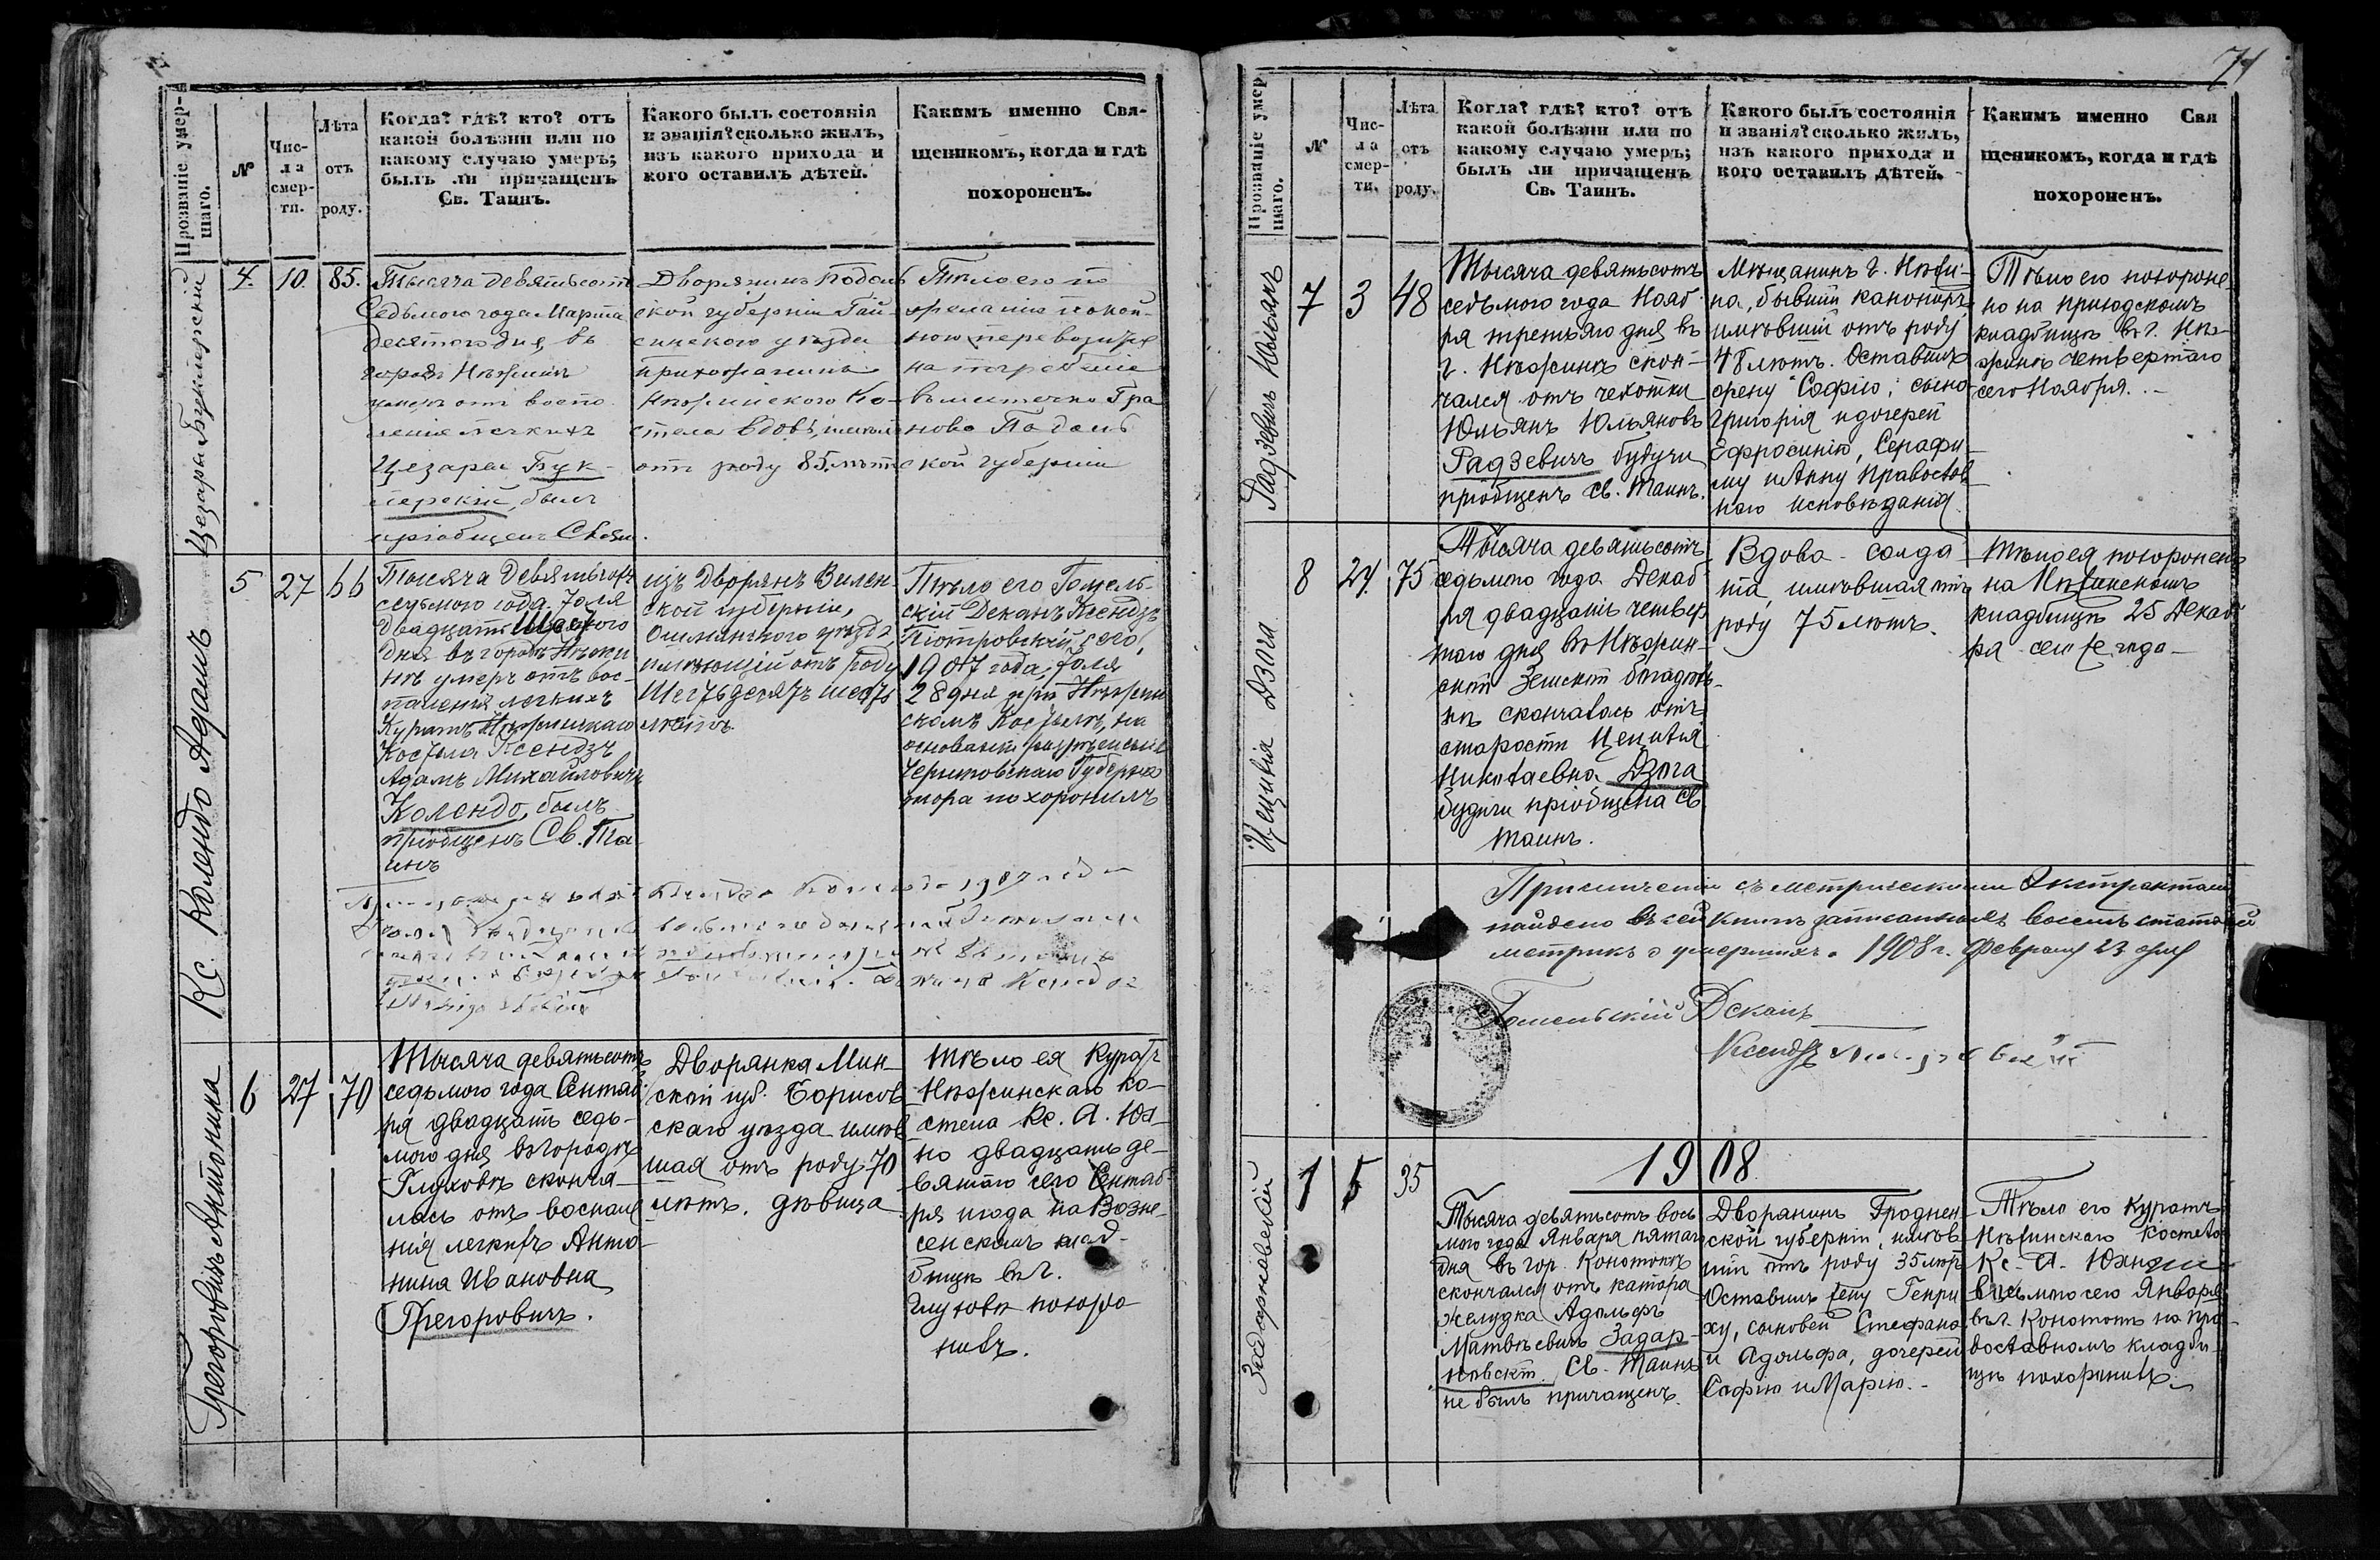 71
Прозваніе умер-
шаго.
№
Чис-
ла
смер-
ти.
Лѣта
отъ
роду.
Когда? гдѣ? кто? отъ
какой болѣзни или по
какому случаю умеръ;
былъ ли причащенъ
Св. Таинъ.
Какого былъ состоянія
и званія? сколько жилъ,
изъ какого прихода и
кого оставилъ дѣтей.
Какимъ именно Свя-
щеникомъ, когда и гдѣ
похороненъ.
Цезарь
4.
10.
85.
Тысяча девятьсотъ
Седьмого года Марта
десятого дня, въ
городѣ Нѣжинѣ
умеръ отъ воспо
ленія легкихъ
Цезарь Бук-
был
пріобщенъ Св.
Дворянинъ Подоль
ской губерніи Гай-
синского уѣзда
прихожанинъ
Нѣжинского Ко-
стела вдовъ,
отъ роду 85 лѣтъ
Тѣло его по
желанію покой-
ного перевозится
на погребеніе
въ мѣстечко Гра
ново Подоль
ской губерніи
Кс. Колендо Адамъ
5
27
66
Тысяча девятьсотъ
седьмого года Іоля
двадцать
дня въ городѣ Нѣжи
нѣ умеръ отъ вос-
паленія легкихъ
Куратъ Нѣжинскаго
Костела Ксендзъ
Адамъ Михайловичъ
Колендо, былъ
пріобщенъ Св. Та
инъ
изъ дворянъ Вилен-
ской губерніи,
Ошмянского уѣзда
имѣющій отъ роду
Шестьдесятъ шесть
лѣтъ.
Тѣло его Гомель-
скій Деканъ Ксендзъ
Піотровскій сего
1907 года, Іоля
28 дня при Нѣжин
скомъ Костелѣ, на
основаніи разрѣшенія
Черниговскаго Губерна
тора похоронилъ
Грегоровичъ Антонина
6
27
70
Тысяча девятьсотъ
седьмого года Сентяб
ря двадцать седь-
мого дня въ городѣ
Глуховѣ сконча-
лась отъ воспале
нія легкихъ Анто-
нина Ивановна
Грегоровичъ.
Дворянка Мин-
ской губ. Борисов
скаго уѣзда имѣв
шая отъ роду 70
лѣтъ. дѣвица
Тѣло ея Куратъ
Нѣжинскаго ко-
стела Кс. А. Юх-
но двадцать де-
вятого сего Сентяб-
ря и года на Возне-
сенскомъ клад-
бищѣ въ г.
Глуховѣ похоро
нилъ.
Прозваніе умер
шаго.
№
Чис-
ла
смер-
ти.
Лѣта
отъ
роду.
Когда? гдѣ? кто? отъ
какой болѣзни или по
какому случаю умеръ;
былъ ли причащенъ
Св. Таинъ.
Какого былъ состоянія
и званія? сколько жилъ,
изъ какого прихода и
кого оставилъ дѣтей.
Какимъ именно Свя
щеникомъ, когда и гдѣ
похороненъ.
Радзевичъ Юльянъ
7
3
48
Тысяча девятьсотъ
седьмого года Нояб
ря третьяго дня въ
г. Нѣжинѣ скон-
чался отъ чехотки
Юльянъ Юльяновъ
Радзевичъ будучи
пріобщенъ Св. Таинъ.
Мѣщанинъ г. Нѣжи-
на, бывшій канониръ,
имѣвшій отъ роду
48 лѣтъ. Оставилъ
жену Софію; сына
Григорія и дочерей
Ефросинію, Серафи-
му и Анну Православ
наго исповѣданія
Тѣло его похороне-
но на приходскомъ
кладбищѣ въ г. Нѣ-
жинѣ четвертаго
сего Ноября.
Цецилія Дзюга
8
24.
75
Тысяча девятьсотъ
седьмого года Декаб
ря двадцать четвер
таго дня въ Нѣжин-
ской Земской богадѣль-
нѣ скончалась отъ
старости Цецилія
Николаевна Дзюга
будучи пріобщена Св.
Таинъ.
Вдова - солда
та, имѣвшая отъ
роду 75 лѣтъ.
Тѣло ея похоронено
на Нѣжинскомъ
кладбищѣ 25 Декаб
ря сего же года
При сличеніи съ метрическими экстрактами
найдено въ сей книгѣ записанныхъ восемь статей
метрикъ о умершихъ. 1908 г. Февраля 23 дня
Гомельскій Деканъ
Ксендзъ
1908
Задарновскій
1
5
35
Тысяча девятьсотъ вось
мого года Января пятаго
дня въ гор. Конотопѣ
скончался отъ катара
желудка Адольфъ
Матвѣевичъ Задар-
новскій. Св. Таинъ
не былъ причащенъ.
Дворянинъ Гроднен-
ской губерніи, имѣв-
шій отъ роду 35 лѣтъ
Оставилъ жену Генри
ху, сыновей Стефана
и Адольфа, дочерей
Софію и Марію.
Тѣло его Куратъ
Нѣжинскаго Костела
Кс. А. Юхно
сего Января
въ г. Конотопѣ на пра-
вославномъ кладби-
щѣ похоронилъ.